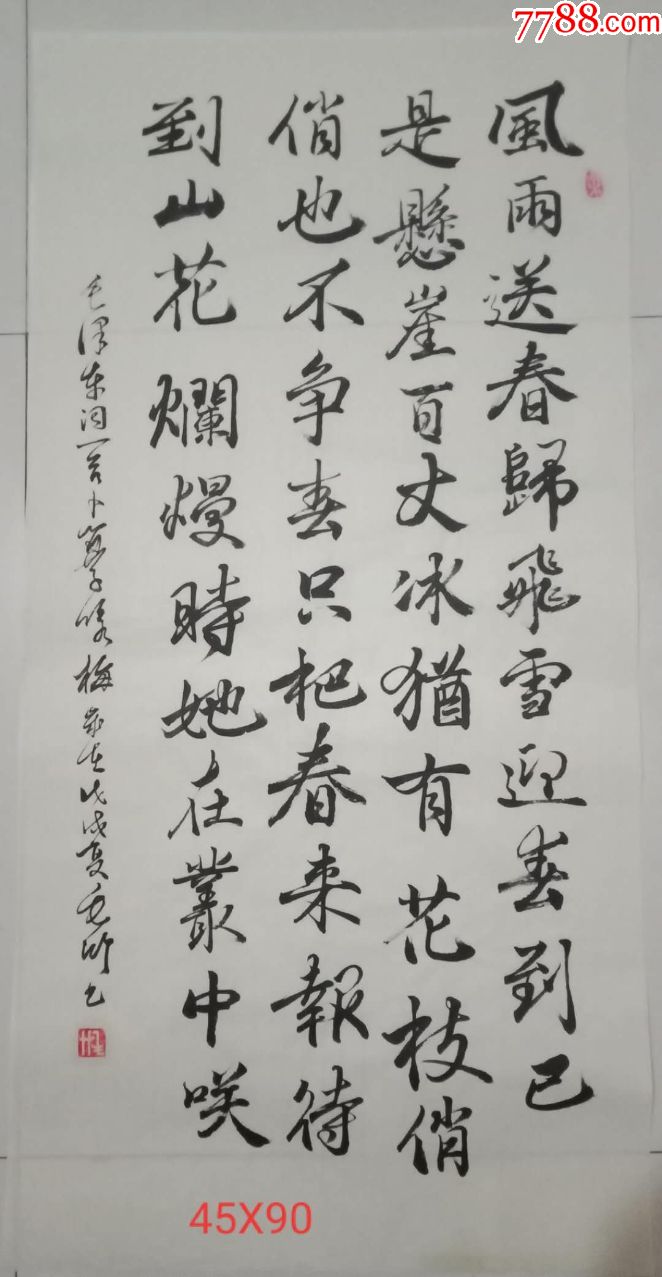 7788.com
風雨送春歸飛雪迎春到已
是懸崖百丈冰猶有花枝俏
俏也不争春只把春来報待
到山花爛熳時她在叢中咲
毛泽东词一首卜算子咏梅 岁在戊戌夏
45X90